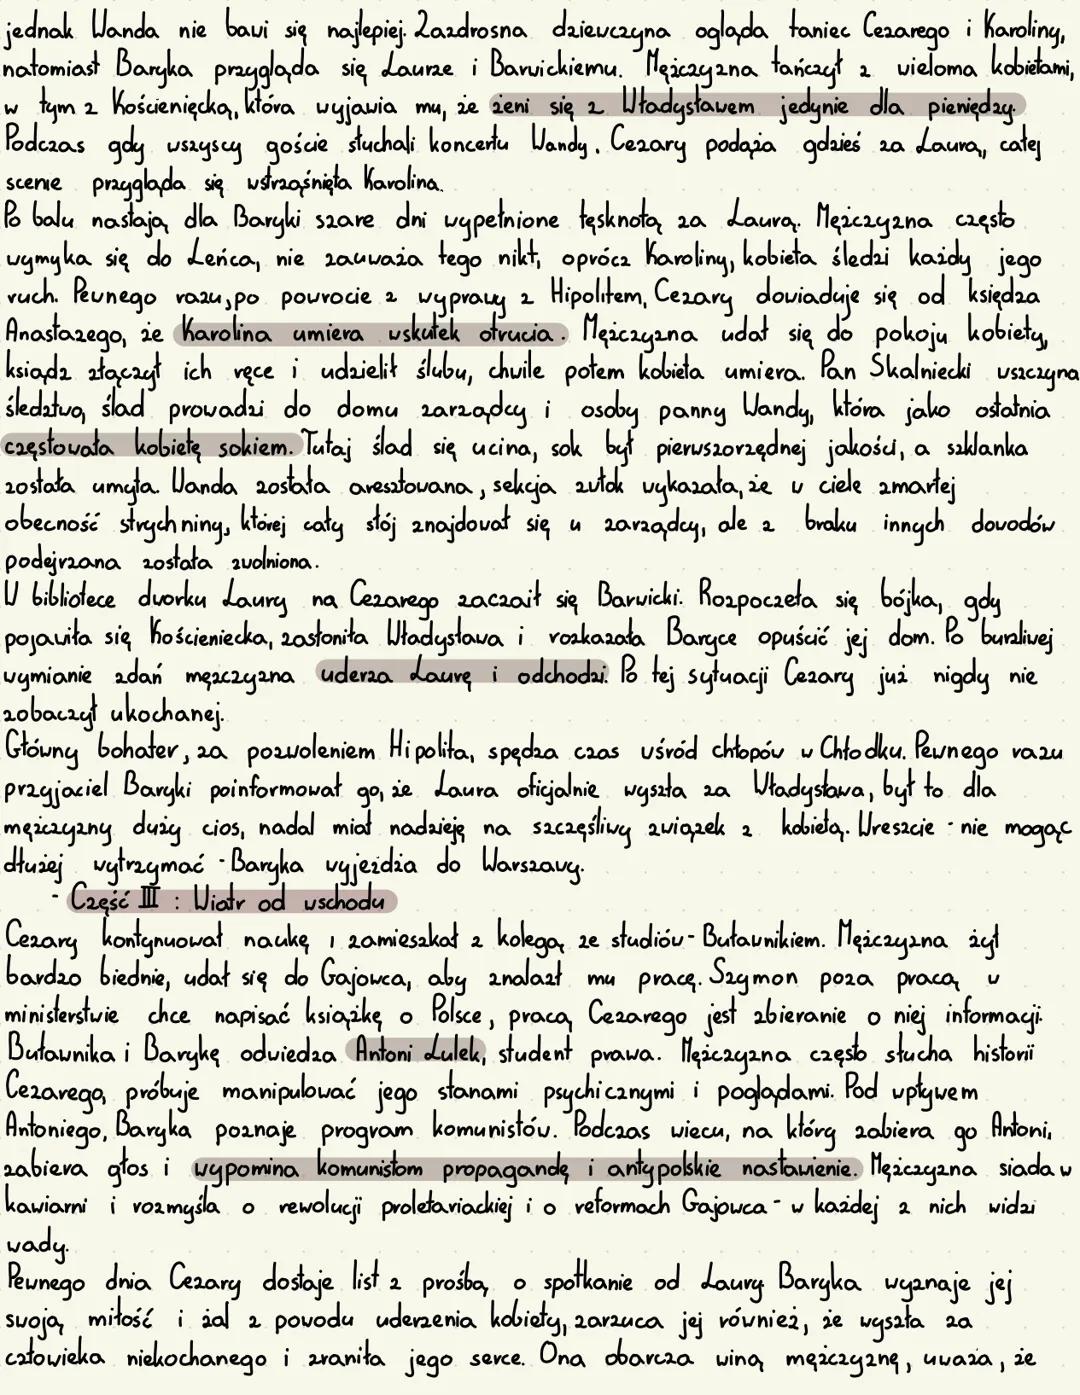 jednak Wanda nie bawi się najlepiej. Zazdrosna dziewczyna ogląda taniec Cezarego i Karoliny,
natomiast Baryka przygląda się Laurze i Barwickiemu. Mężczyzna tańczył z wieloma kobietami,
w tym z Kościenięcką, która wyjawia mu, że żeni się z Władysławem jedynie dla pieniędzy.
Podczas gdy wszyscy goście słuchali koncertu Wandy, Cezary podąża gdzieś za Laurą, całej
scenie przygląda się wstrząśnięta Karolina.
Po balu nastają dla Baryki szare dni wypełnione tęsknotą za Laurą. Mężczyzna często
wymyka się do Leńca, nie zauważa tego nikt, oprócz Karoliny, kobieta śledzi każdy jego
ruch. Pewnego razu, po powrocie z wyprawy z Hipolitem, Cezary dowiaduje się od księdza
Anastazego, że Karolina umiera wskutek otrucia. Mężczyzna udał się do pokoju kobiety,
ksiądz złączył ich ręce i udzielił ślubu, chwile potem kobieta umiera. Pan Skalniecki wszczyna
śledztwo, ślad prowadzi do domu zarządcy i osoby panny Wandy, która jako ostatnia
częstowała kobietę sokiem. Tutaj ślad się ucina, sok był pierwszorzędnej jakości, a szklanka
została umyta. Wanda została aresztowana, sekcja zwłok wykazała, że w ciele zmarłej
obecność strychniny, której cały słój znajdował się u zarządcy, ale z braku innych dowodów
podejrzana została zwolniona.
W bibliotece dworku Laury na Cezarego zaczaił się Barwicki. Rozpoczeła się bójka, gdy
pojawiła się Kościeniecka, zasłoniła Władysława i rozkazała Baryce opuścić jej dom. Po burzliwej
wymianie zdań mężczyzna uderza Laurę i odchodzi. Po tej sytuacji Cezary już nigdy nie
zobaczył ukochanej.
Główny bohater, za pozwoleniem Hipolita, spędza czas wśród chłopów w Chłodku. Pewnego razu
przyjaciel Baryki poinformował go, że Laura oficjalnie wyszła za Władysława, był to dla
mężczyzny duży cios, nadal miał nadzieję na szczęśliwy związek z kobietą. Wreszcie - nie mogąc
dłużej wytrzymać - Baryka wyjeżdża do Warszawy.
- Część III : Wiatr od wschodu
Cezary kontynuował naukę i zamieszkał z kolegą ze studiów - Buławnikiem. Mężczyzna żył
bardzo biednie, udał się do Gajowca, aby znalazł mu pracę. Szymon poza pracą w
ministerstwie chce napisać książkę o Polsce, pracą Cezarego jest zbieranie o niej informacji.
Buławnika i Barykę odwiedza Antoni Lulek, student prawa. Mężczyzna często słucha historii
Cezarego, próbuje manipulować jego stanami psychicznymi i poglądami. Pod wpływem
Antoniego, Baryka poznaje program komunistów. Podczas wiecu, na który zabiera go Antoni,
zabiera głos i wypomina komunistom propagandę i antypolskie nastawienie. Mężczyzna siada w
kawiarni i rozmyśla o rewolucji proletariackiej i o reformach Gajowca - w każdej z nich widzi
wady.
Pewnego dnia Cezary dostaje list z prośbą o spotkanie od Laury. Baryka wyznaje jej
swoją miłość i żal z powodu uderzenia kobiety, zarzuca jej również, że wyszła za
człowieka niekochanego i zraniła jego serce. Ona obarcza winą mężczyznę, uważa, że